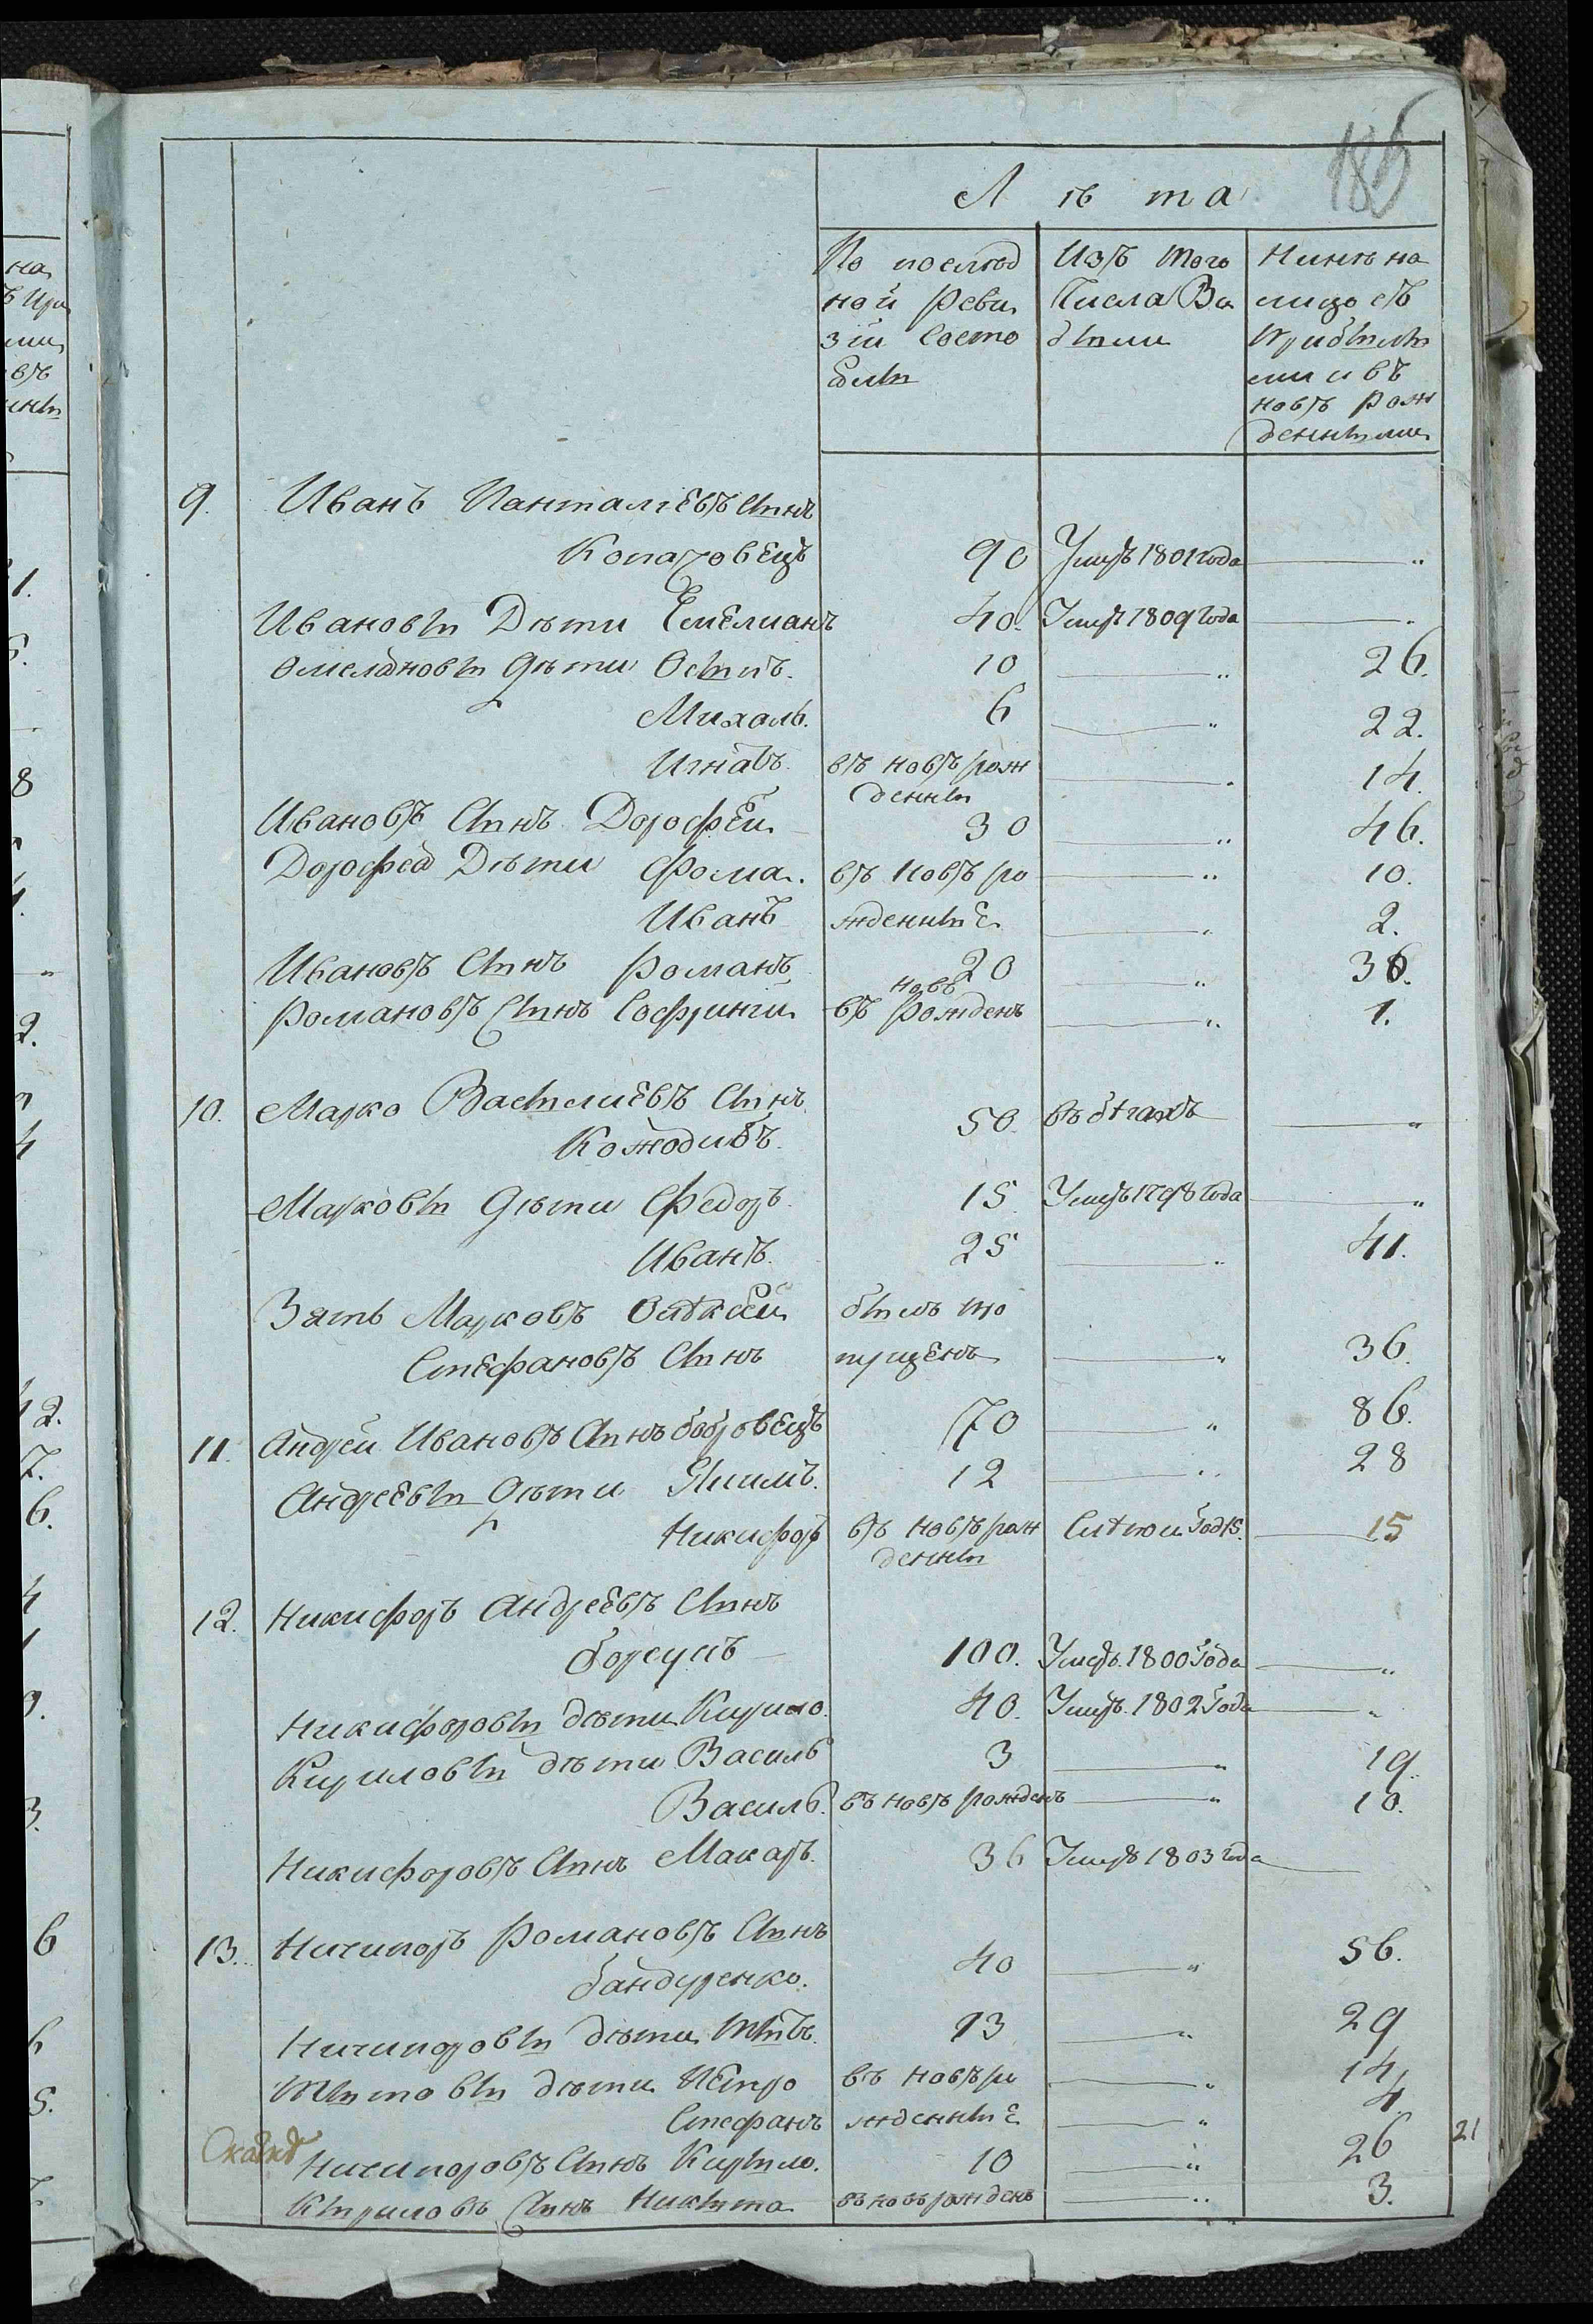 186
Л ѣ та
По послѣд Изъ того Нинѣ на
ной реви числа Ви лицо съ
зіи состо были прибылы
яли ми и въ
новъ рож
денными
9. Иванъ Панталіевъ Сынъ
Копаговецъ 90 Умеръ 1801 года ..
Ивановы Дѣти Емелианъ 40. Умеръ 1809 года .
Омеляновы дѣти Осыпъ. 10 .. 26.
Михаль. 6 .. 22.
Игнатъ. въ новъ рож . 14.
денны
Ивановъ Сынъ Дорофей 30 .. 46.
Дорофея Дѣти Фома. въ новъ ро .. 10.
Иванъ жденные .. 2.
Ивановъ Сынъ Романъ 20 .. 36.
новъ
Романовъ Сынъ Софрингій въ рожденъ .. 1.
10. Марко Васылиевъ Сынъ
Кожодибъ. 50. въ бегахъ ..
Марковы дѣти Федоръ. 15. Умеръ 1798 года ..
Иванъ. 25 .. 41.
Зять Марковъ былъ про
Стефановъ Сынъ пущенъ .. 36.
11. Андрей Ивановъ Сынъ бобровецъ 70 .. 86.
Андреевы дѣти Якимъ. 12 .. 28
Никифоръ въ новъ рож 15
денны
12. Никифоръ Андреевъ Сынъ
борсукъ 100. Умеръ. 1800 года ..
Никифоровы дѣти Кирило. 40. Умеръ. 1802 года ..
Кириловы дѣти Василь 3 .. 19.
Василь. въ новъ рожденъ .. 10.
Никифоровъ Сынъ Макаръ. 36 Умеръ 1803 года
13. Ничипоръ Романовъ Сынъ
бандуренко. 40 .. 56.
Ничипоровы дѣти Тытъ. 13 .. 29
Тытовы дѣти Петро въ новъ ро .. 14,
Стефанъ жденные .. 4
Ничипоровъ Сынъ Кирыло. 10 .. 26 21
Кыриловъ Сынъ Никыта въ новъ рожденъ .. 3.